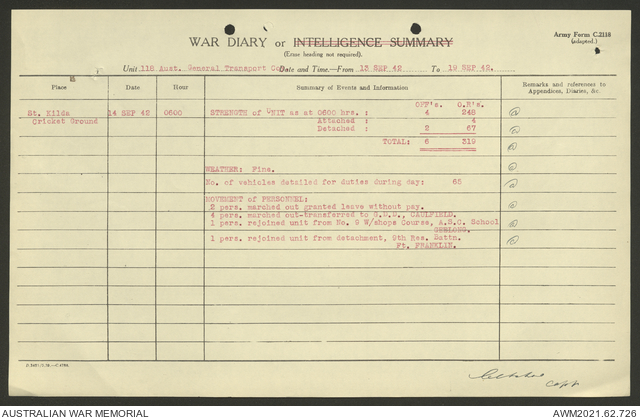 Army Form C.2118
(adapted.)
WAR DIARY or INTELLIGENCE SUMMARY
(Erase heading not required).
Unit 118 Aust. General Transport Coy Date and Time.—From 13 SEP 42 To 19 SEP 42.
Place Date Hour Summary of Events and Information Remarks and references to Appendices, Diaries, &c.
OFF's. O.R's.
St. Kilda 14 SEP 42 0600 STRENGTH of UNIT as at 0600 hrs. : 4 248
Cricket Ground Attached : 4
Detached : 2 67
TOTAL: 6 319
WEATHER: Fine.
No. of vehicles detailed for duties during day: 65
MOVEMENT of PERSONNEL:
2 pers. marched out granted leave without pay.
4 pers. marched out-transferred to G.D.D., CAULFIELD.
1 pers. rejoined unit from No. 9 W/shops Course, A.S.C. School
GEELONG.
1 pers. rejoined unit from detachment, 9th Res. Battn.
Ft. FRANKLIN.
Capt
AUSTRALIAN WAR MEMORIAL AWM2021.62.726